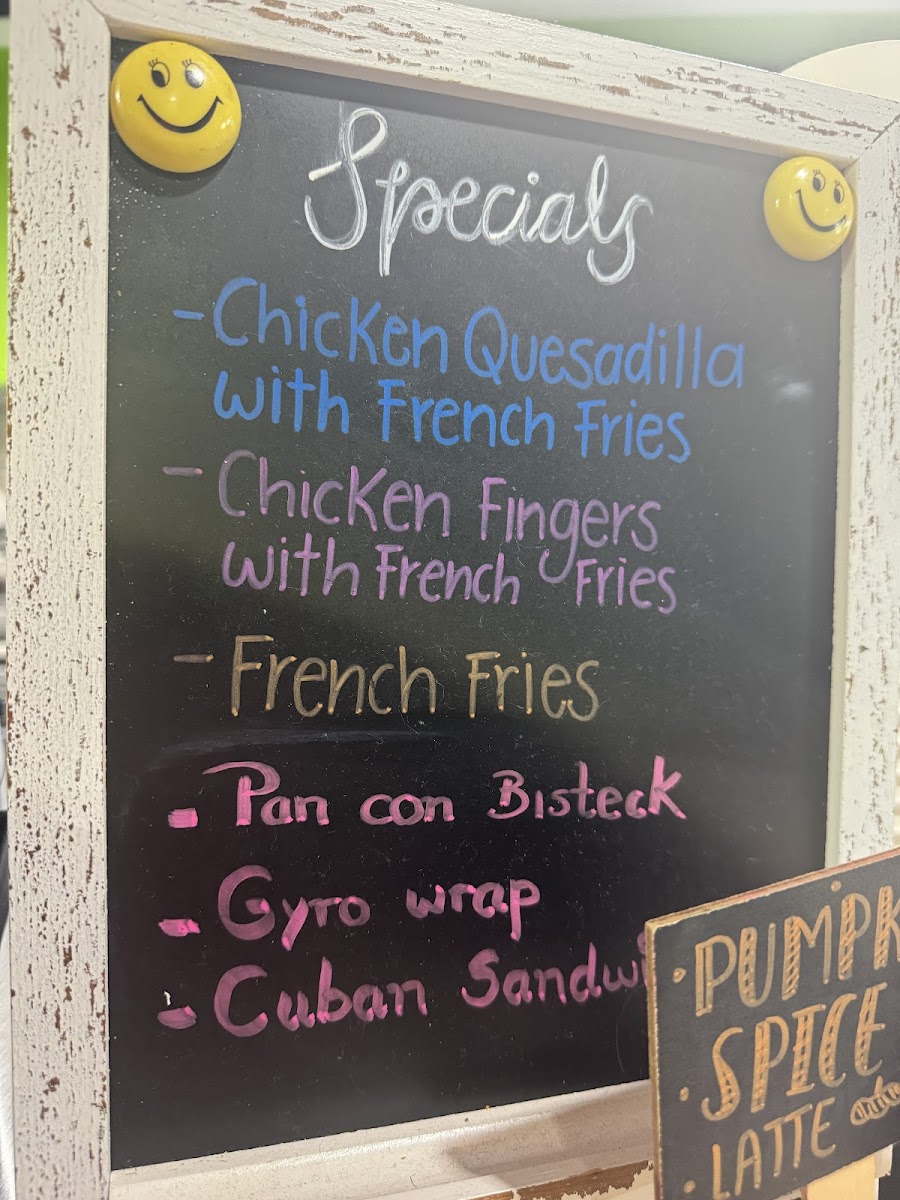 Specials
- Chicken Quesadilla
with French Fries
- Chicken Fingers
with French Fries
- French Fries
- Pan con Bisteck
- Gyro wrap
- Cuban Sandwi
PUMPK
SPICE
LATTE